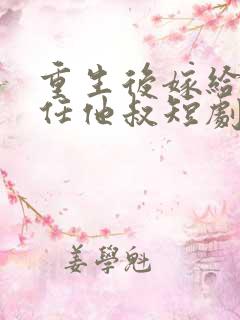 重生後嫁給
任他叔短劇
姜學魁